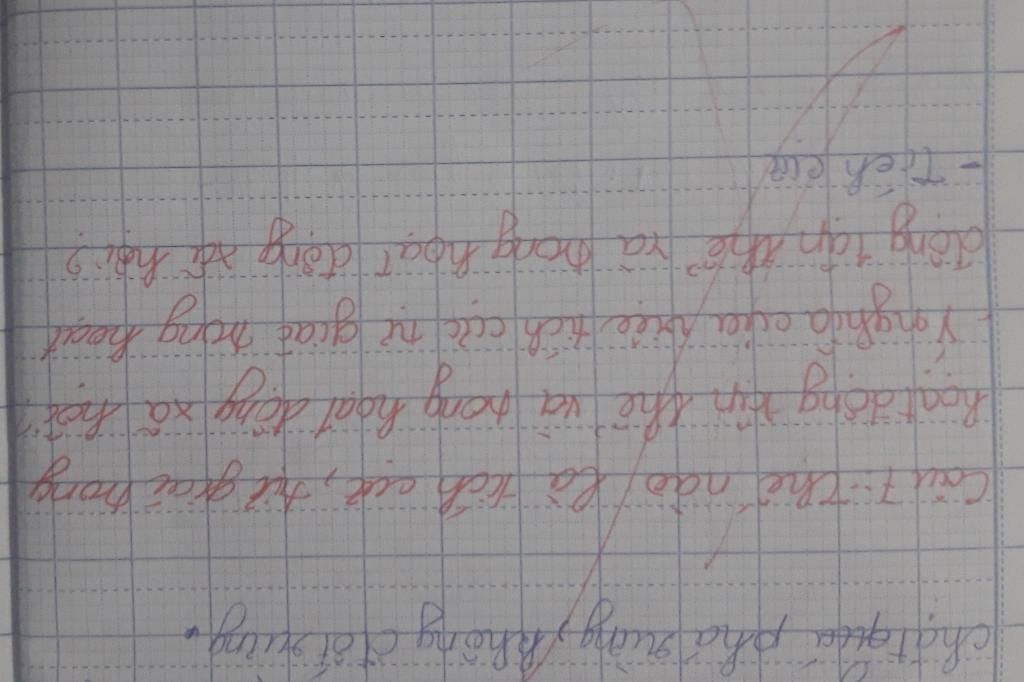 chặt phá rừng, không đốt rừng.
Câu 7: Thế nào là tích cực, tự giác trong
hoạt động tập thể và trong hoạt động xã hội?
- Ý nghĩa của việc tích cực tự giác trong hoạt
động tập thể và trong hoạt động xã hội?
- Tích cực